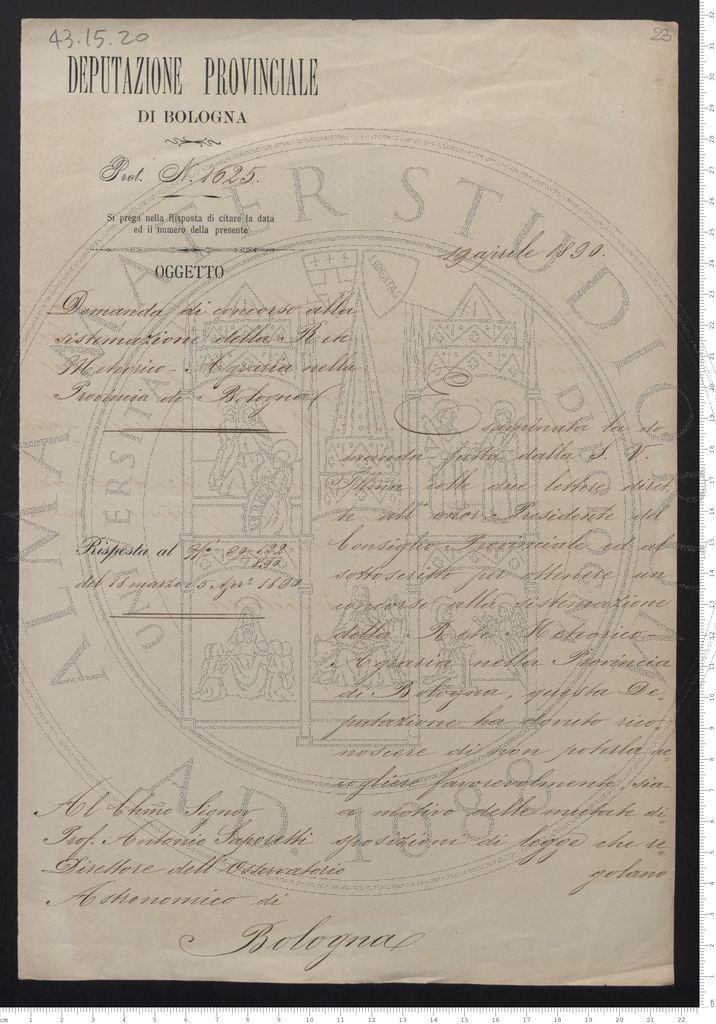 43.15.20
23
DEPUTAZIONE PROVINCIALE
DI BOLOGNA
Prot. N. 1625.
Si prega nella Risposta di citare la data
ed il numero della presente
19 aprile 1890.
OGGETTO
Domanda di concorso alla
sistemazione della Rete
Meteorico-Agraria nella
Provincia di Bologna
Risposta al
del 18 marzo e 5 Apr. 1890
Esaminata la do
manda fatta dalla S. V.
Illma colle due lettere diret
te all' onor. Presidente del
Consiglio Provinciale ed al
sottoscritto per ottenere un
concorso alla sistemazione
della Rete Meteorico-
Agraria nella Provincia
di Bologna, questa De-
putazione ha dovuto rico-
noscere di non poterla ac
cogliere favorevolmente, sia
a motivo delle mutate di-
sposizioni di legge che re-
golano
Al Chmo Signor
Prof. Antonio Saporetti
Direttore dell'Osservatorio
Astronomico di
Bologna
ALMA MATER STUDIORUM
UNIVERSITÀ DI BOLOGNA
A.D. 1088
LIBERTAS